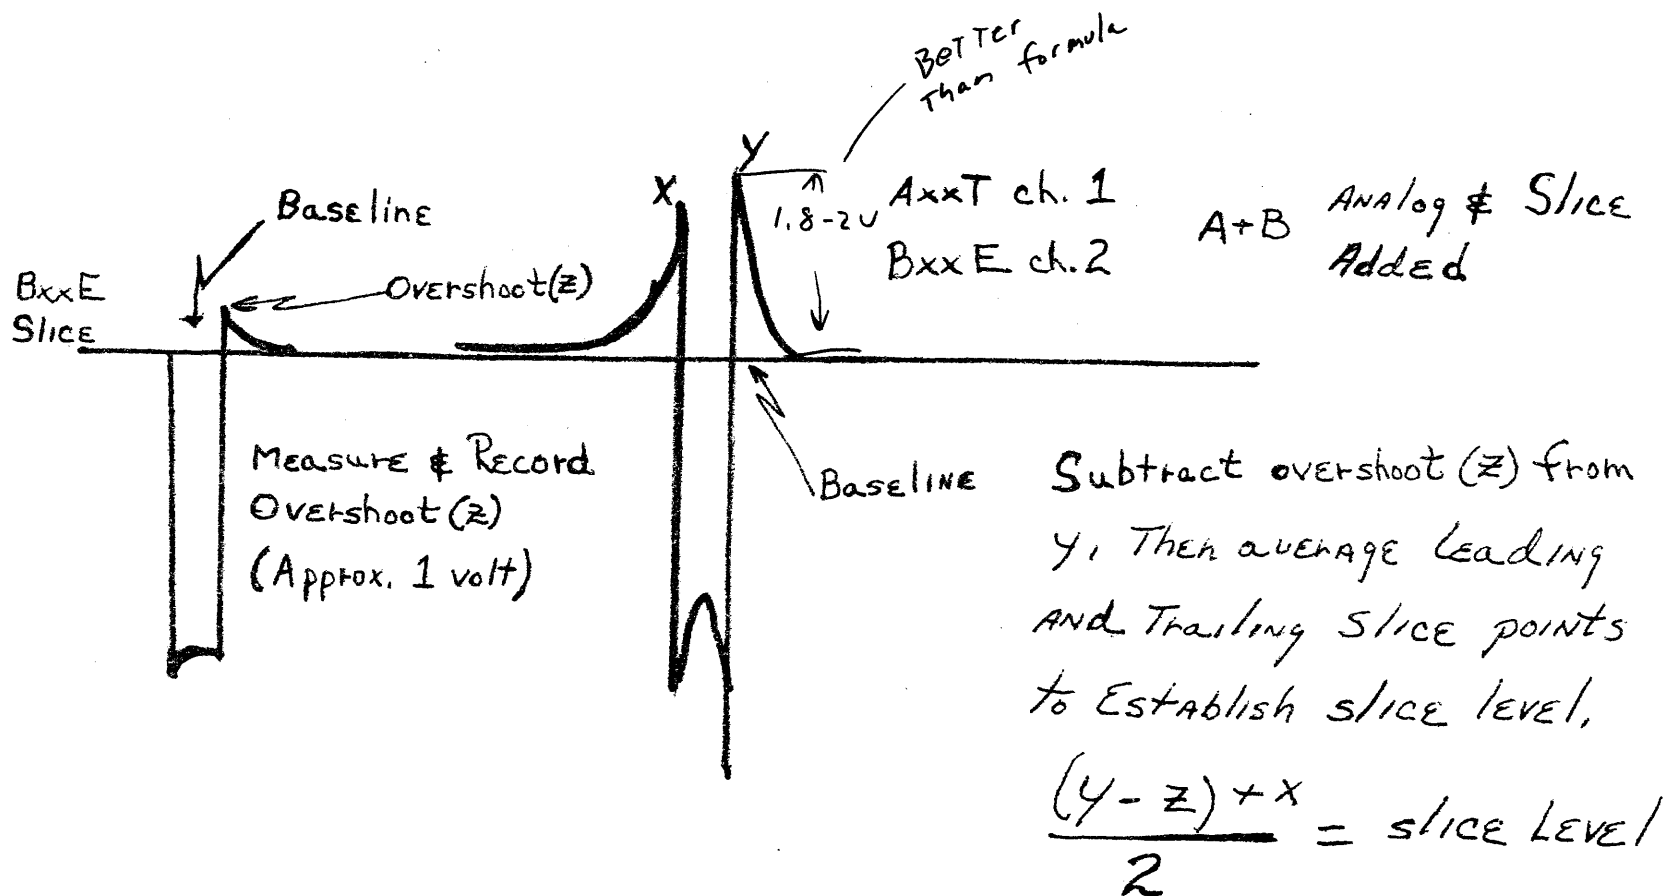 BETTER
Than formula
Y
X
Baseline
1.8-2V
AxxT ch. 1
BxxE ch. 2
A+B
Analog & Slice
Added
BxxE
Slice
Overshoot (z)
Measure & Record
Overshoot (z)
(Approx. 1 volt)
Baseline
Subtract overshoot (z) from
y, Then average leading
and Trailing slice points
to Establish slice level.
(y - z) + x
2
= slice Level